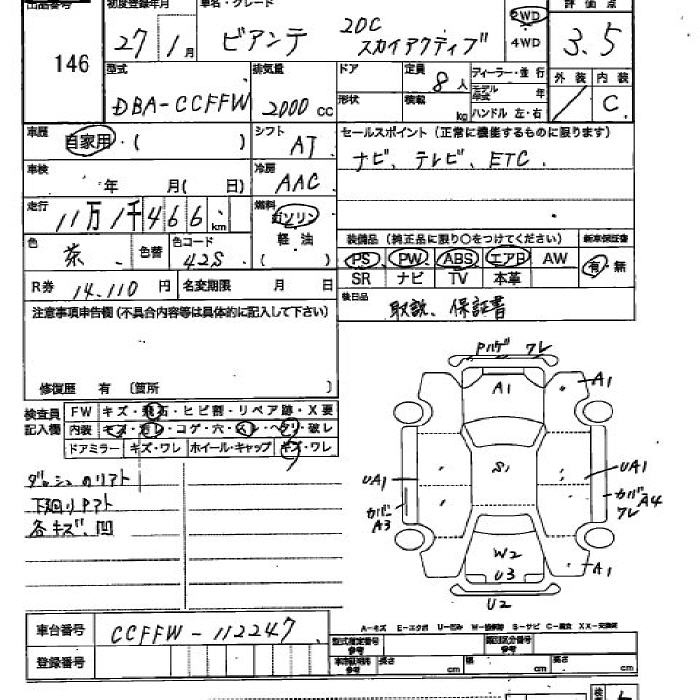 出品番号 初度登録年月 車名・グレード 評価点
146 27 1月 ビアンテ 20C スカイアクティブ 2WD 4WD 3.5
型式 排気量 ドア 定員 8人 ディーラー・並行 外装 内装
DBA-CCFFW 2000cc 形状 積載 kg モデル年式 年 ハンドル 左・右 C
車歴 自家用・( ) シフト AT セールスポイント(正常に機能するものに限ります)
車検 年 月( 日) 冷房 AAC ナビ、テレビ、ETC
走行 11万1千466km 燃料 ガソリン 軽油 ( )
色 茶 色替 色コード 42S 装備品(純正品に限り○をつけてください) 新車保証書
PS PW ABS エアB AW 有・無
SR ナビ TV 本革
R券 14,110円 名変期限 月 日 後日品 取説、保証書
注意事項申告欄(不具合内容等は具体的に記入して下さい)
修復歴 有 (箇所 )
検査員記入欄 FW キズ・飛石・ヒビ割・リペア跡・X要
内装 キズ・汚レ・コゲ・穴・スレ・ヘタリ・破レ
ドアミラー キズ・ワレ ホイール・キャップ キズ・ワレ
下廻リ
各キズ、凹
ワレ
A1
A1
S1
UA1
UA1
A3
A4
ワレ
W2
U3
A1
U2
A-キズ E-エクボ U-凹み W-補修跡 S-サビ C-腐食 XX-交換済
車台番号 CCFFW-112247 型式指定番号 参考 類別区分番号 参考
登録番号 車検証明 参考 長さ cm 幅 cm 高さ cm